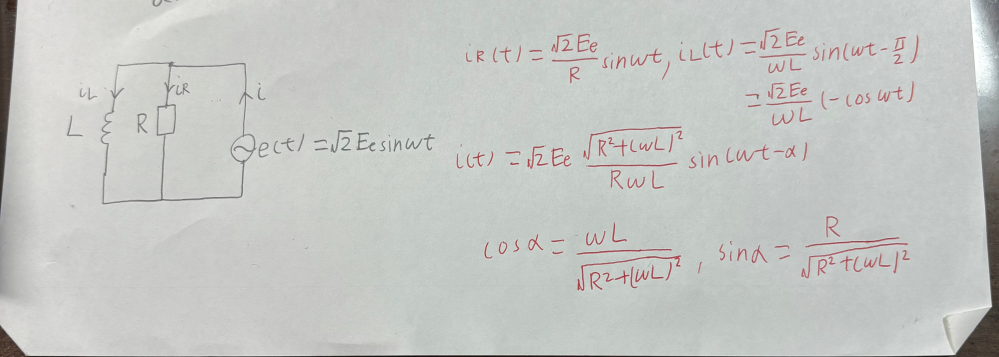 iL iR i
L R e(t) = √2 Ee sinωt
iR(t) = √2Ee/R sinωt, iL(t) = √2Ee/ωL sin(ωt - π/2)
= √2Ee/ωL (-cosωt)
i(t) = √2Ee √R²+(ωL)²/RωL sin(ωt-α)
cosα = ωL/√R²+(ωL)², sinα = R/√R²+(ωL)²